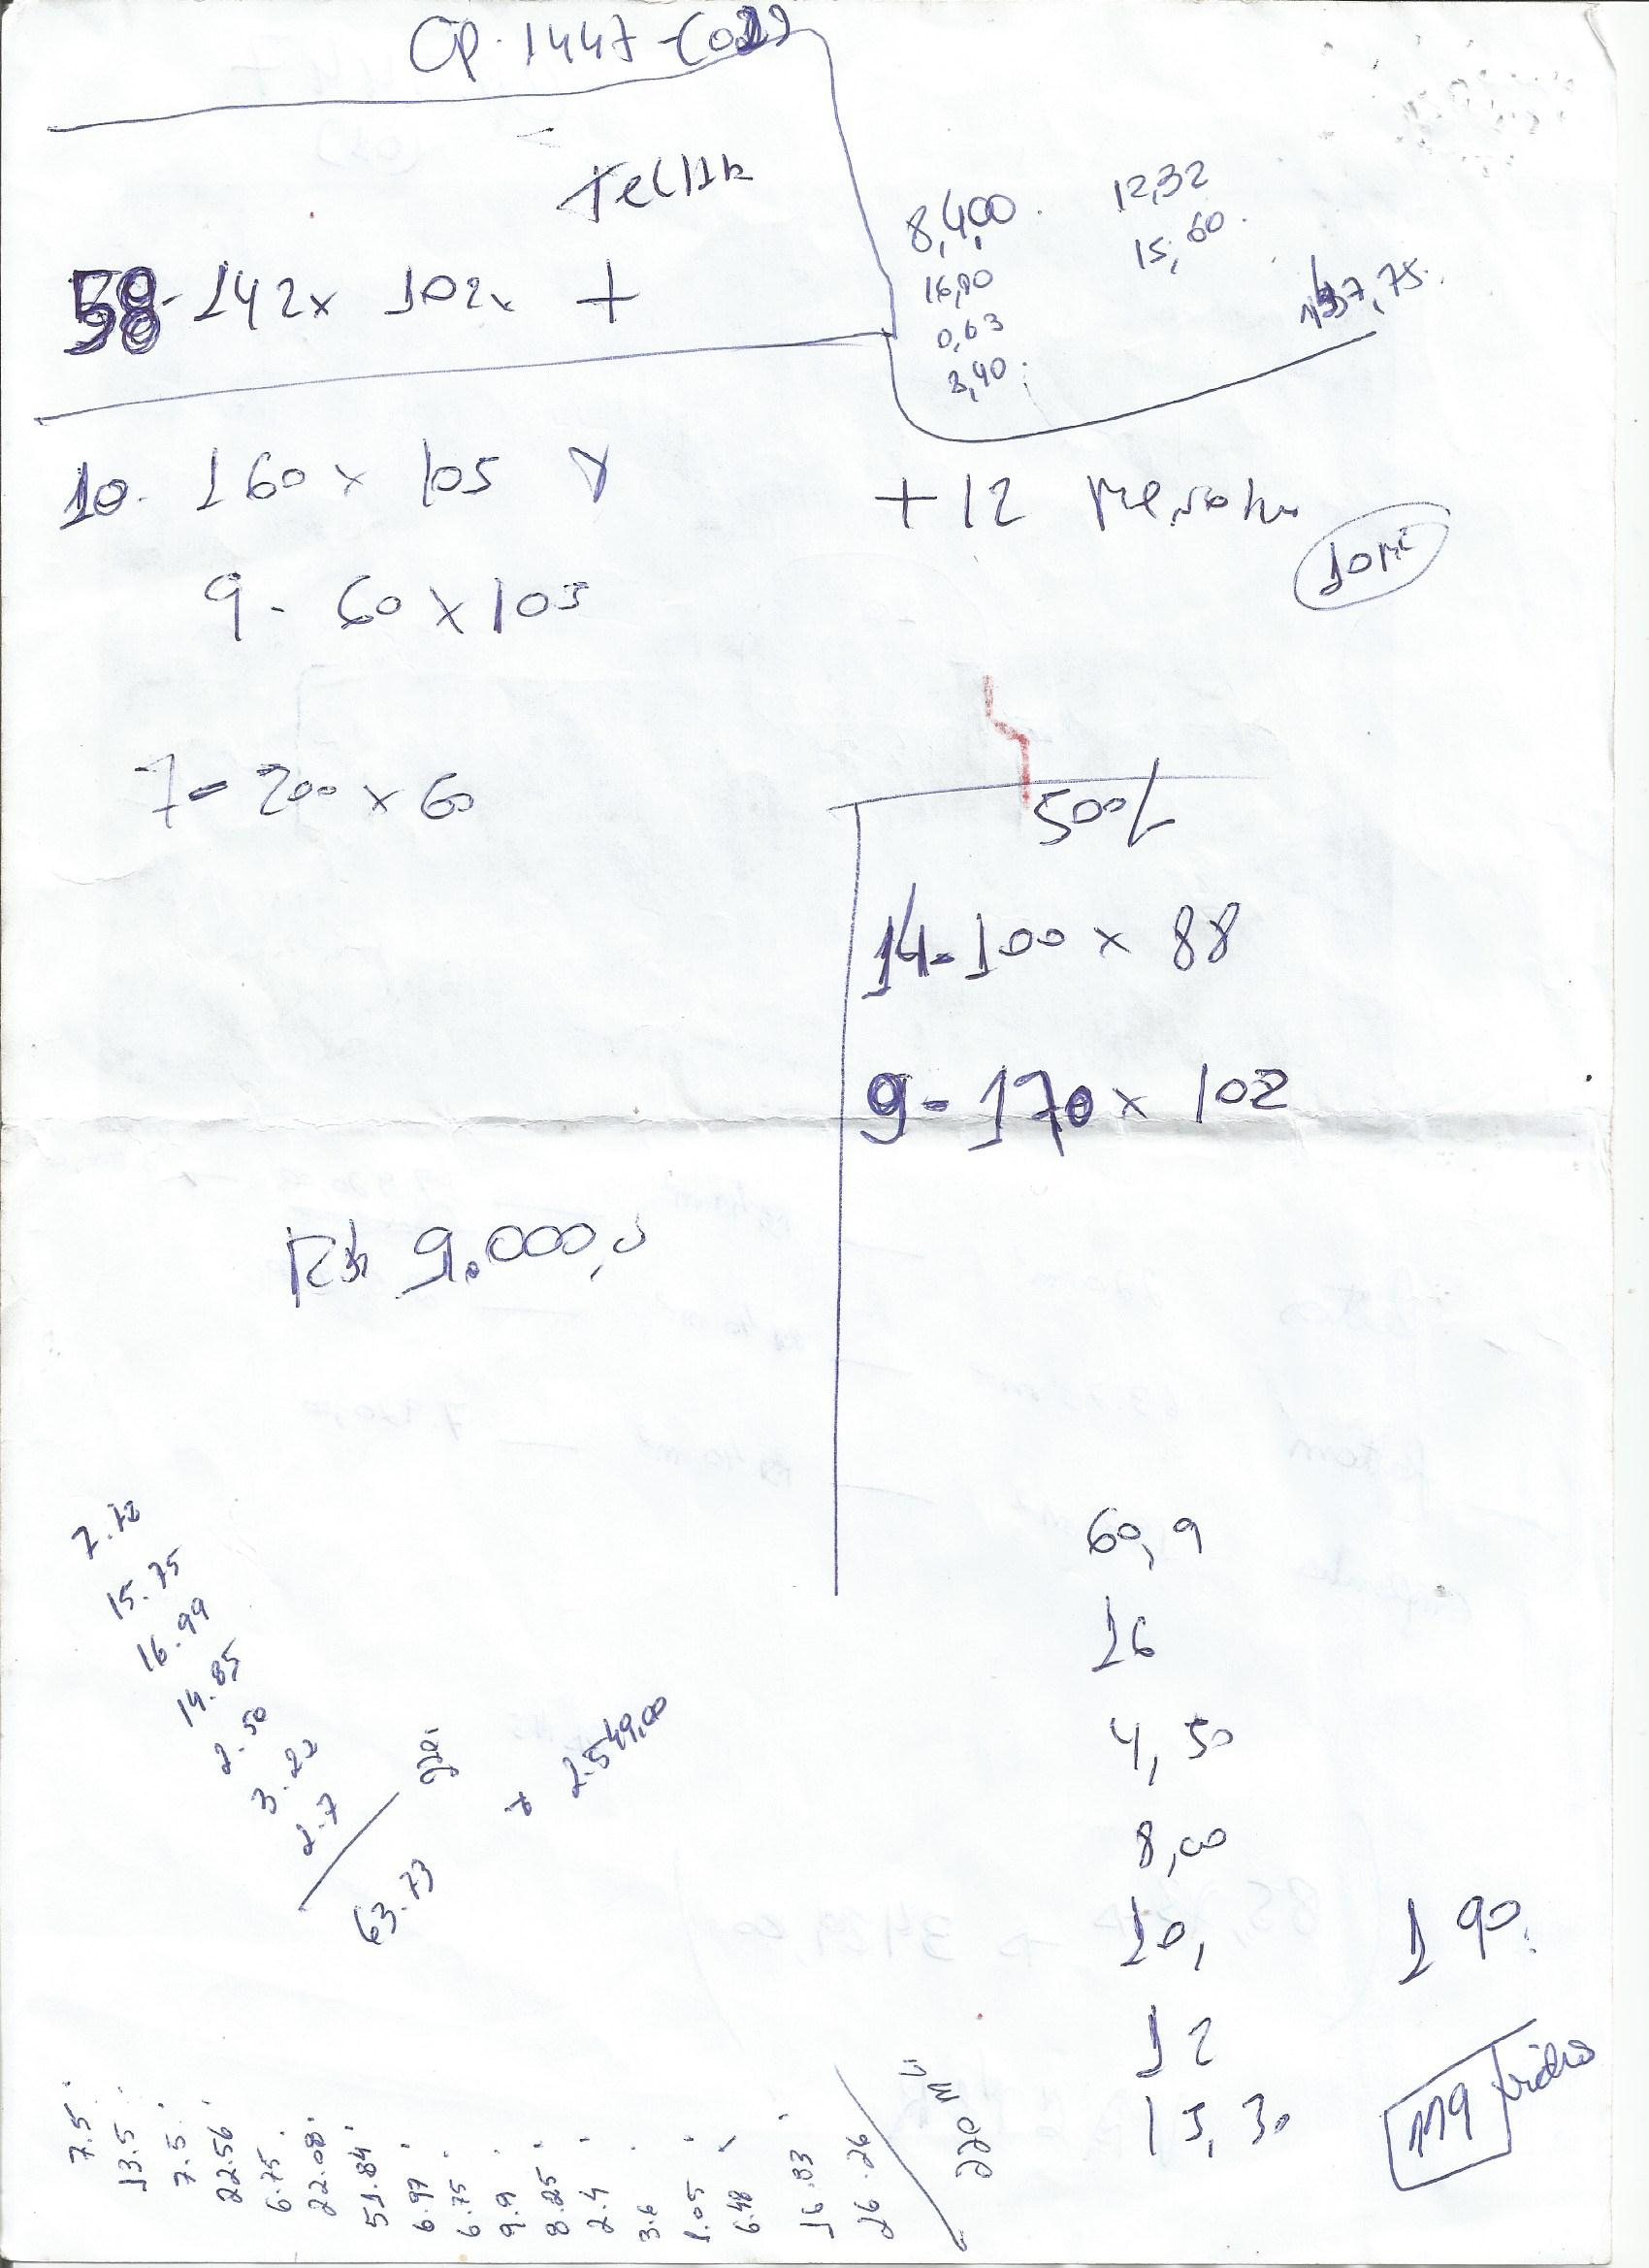 CP. 1447-
8,400.
12,32
15,60.
16,90
0,63
3,40.
137,75.
58-142x 102x +
10. 160 x 105
+12
9- 60 x 105
7- 200 x 60
500L
14-100 x 88
9-170 x 102
R$ 9.000,0
60,9
16
4,50
8,00
10,
190.
12
15,30
119 vidros
7.72
15.75
16.99
14.85
2.50
3.22
2.7
63.73
220.
2.549,00
7.5
13.5
7.5
22.56
6.75
22.08
51.84
6.97
6.75
9.9
8.25
2.4
3.6
1.05
6.48
16.83
26.26
220 m